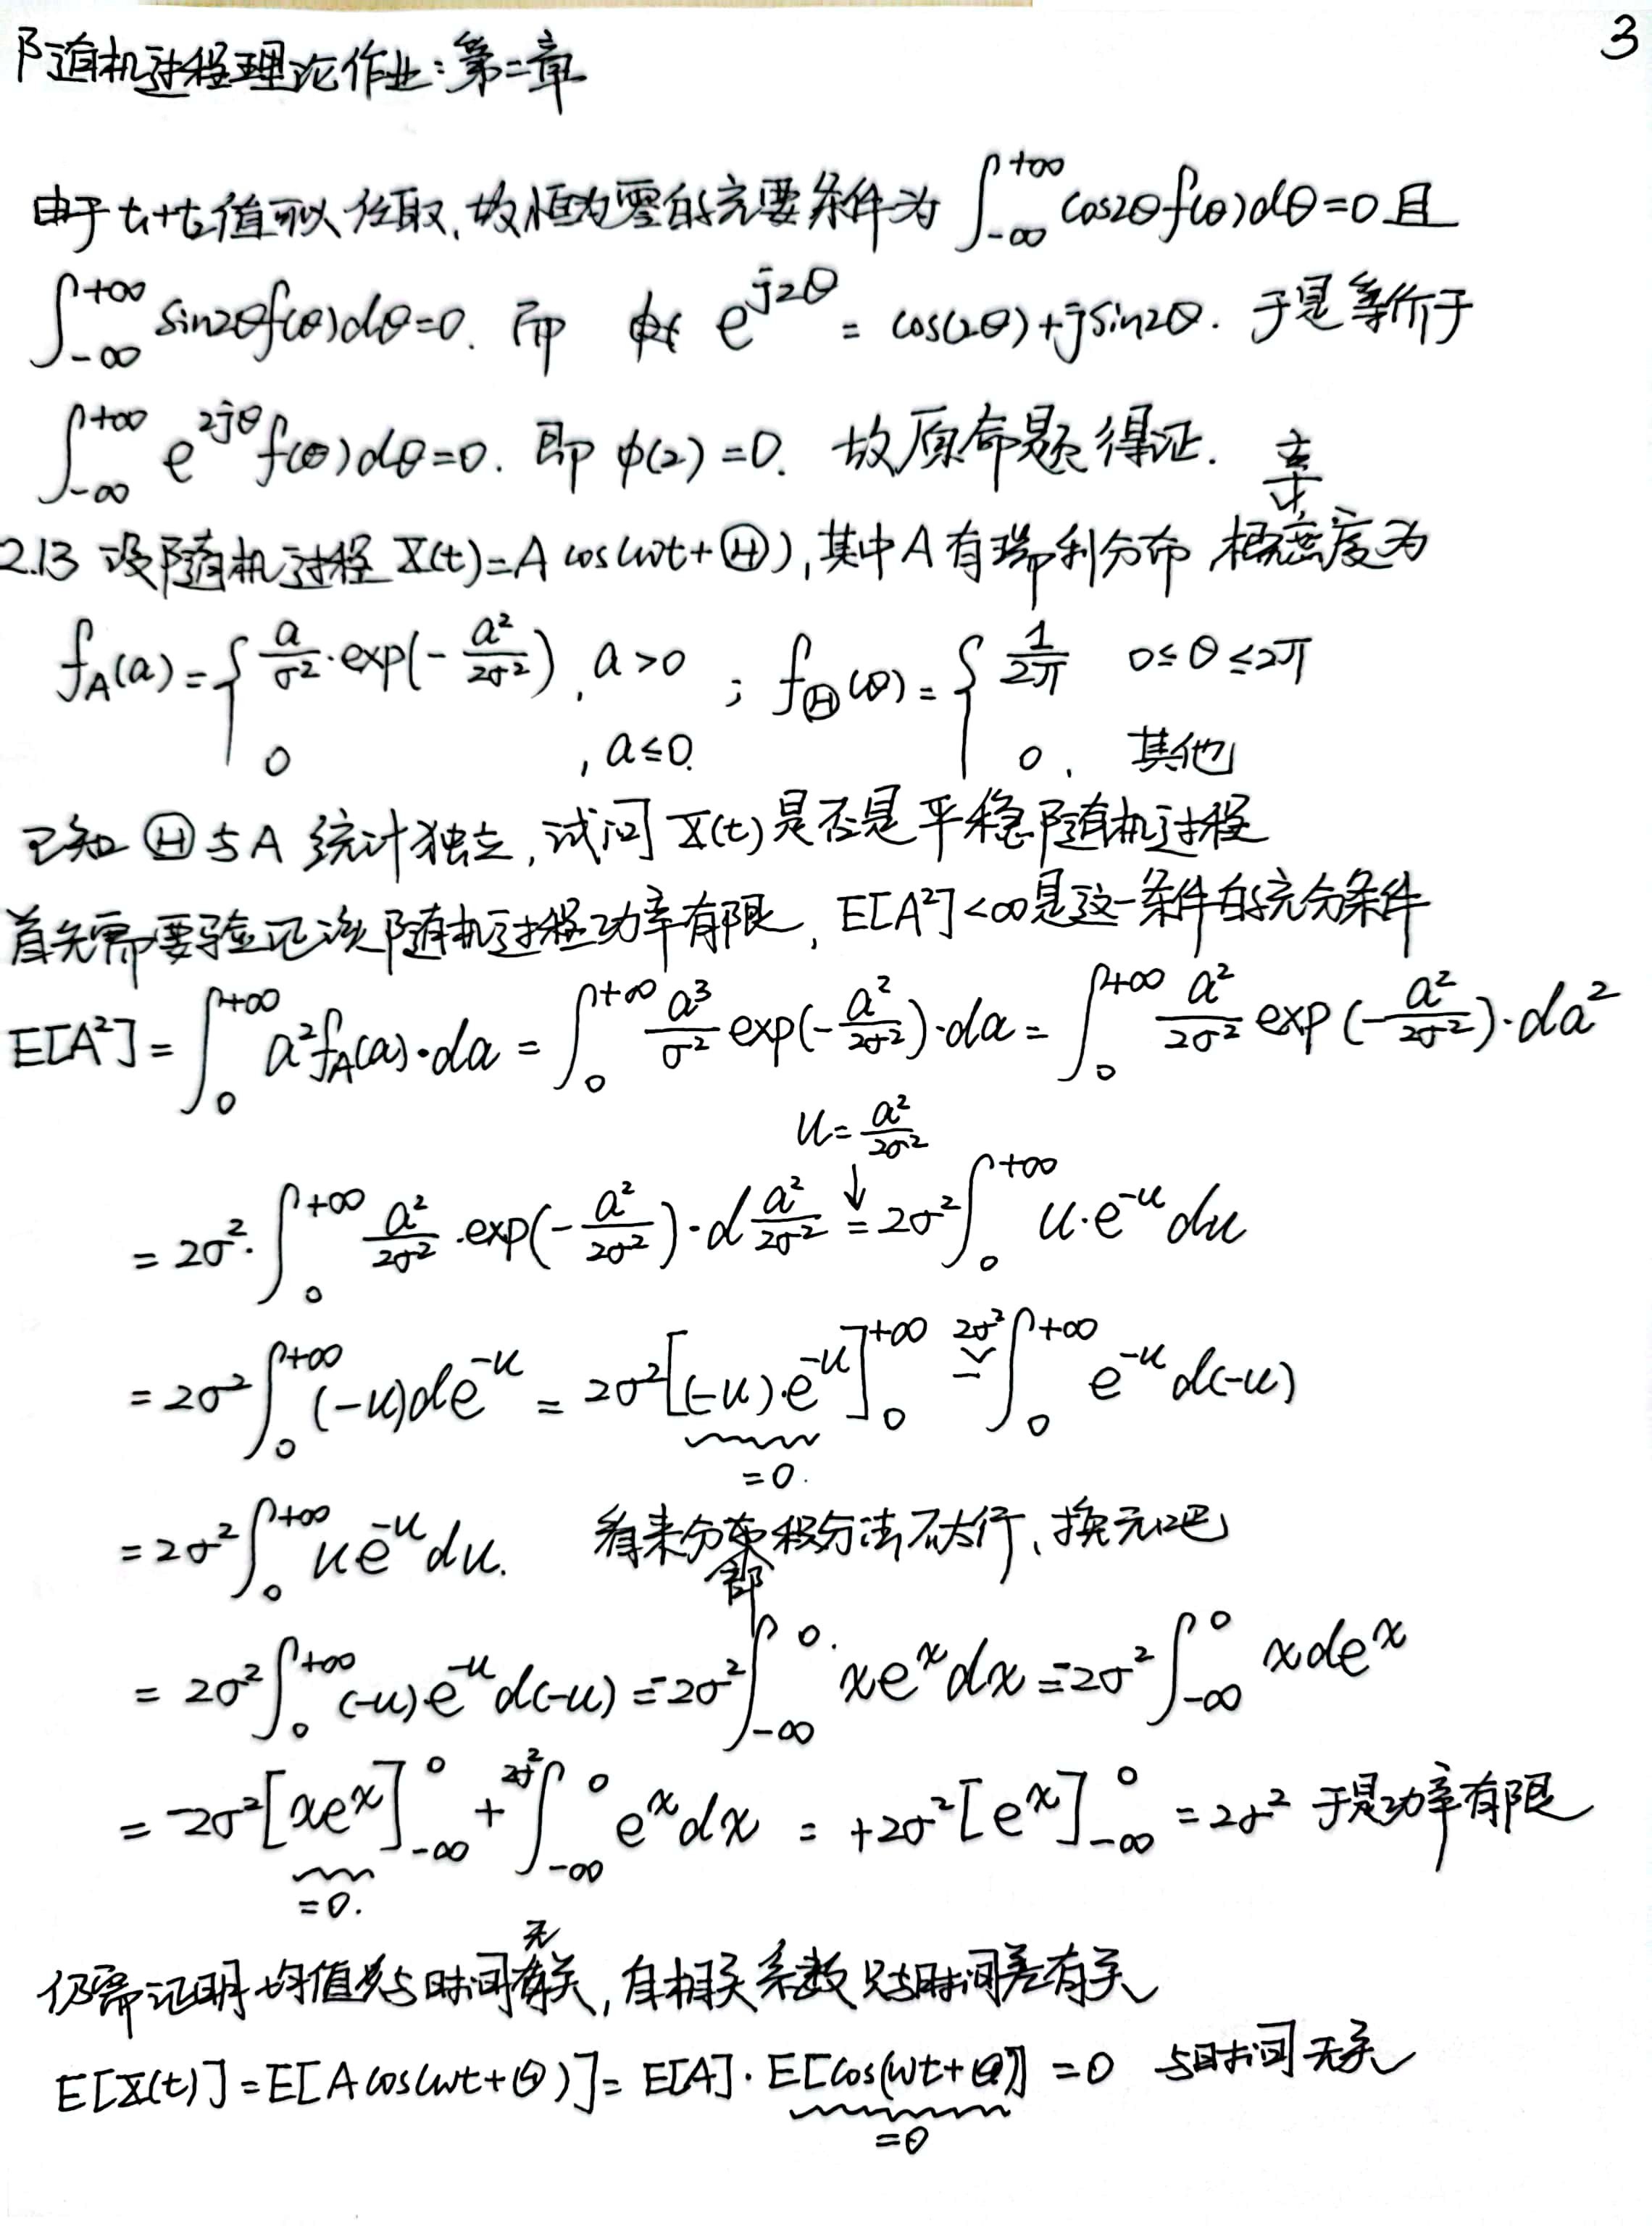 随机过程理论作业:第二章
3
由于t₁+t₂值可以任取,故恒为零的充要条件为 ∫_{-∞}^{+∞} cos2θf(θ)dθ=0且
∫_{-∞}^{+∞} sin2θf(θ)dθ=0. 而 e^{j2θ} = cos(2θ)+jsin2θ. 于是等价于
∫_{-∞}^{+∞} e^{2jθ}f(θ)dθ=0. 即 φ(2)=0. 故原命题得证.
2.13 设随机过程 X(t)=A cos(ωt+Θ),其中A有瑞利分布,概率密度为
f_A(a)={ a/σ²·exp(-a²/2σ²), a>0 ; f_Θ(θ)={ 1/2π 0≤θ≤2π
0 , a≤0. 0, 其他
已知Θ与A统计独立,试问X(t)是否是平稳随机过程
首先需要验证该随机过程功率有限, E[A²]<∞是这一条件的充分条件
E[A²]=∫_0^{+∞} a²f_A(a)·da = ∫_0^{+∞} a³/σ² exp(-a²/2σ²)·da = ∫_0^{+∞} a²/2σ² exp(-a²/2σ²)·da²
u=a²/2σ²
↓
= 2σ²·∫_0^{+∞} a²/2σ²·exp(-a²/2σ²)·d a²/2σ² = 2σ²∫_0^{+∞} u·e^{-u}du
= 2σ²∫_0^{+∞} (-u)de^{-u} = 2σ²[(-u)·e^{-u}]_0^{+∞} - 2σ²∫_0^{+∞} e^{-u}d(-u)
=0.
= 2σ²∫_0^{+∞} ue^{-u}du. 看来分部积分法不太行,换元吧
= 2σ²∫_0^{+∞} (-u)e^{-u}d(-u) = -2σ²∫_{-∞}^0 xe^x dx = -2σ²∫_{-∞}^0 xde^x
= -2σ²[xe^x]_{-∞}^0 + 2σ²∫_{-∞}^0 e^x dx = +2σ²[e^x]_{-∞}^0 = 2σ² 于是功率有限
=0.
仍需证明均值与时间无关,自相关系数只与时间差有关
E[X(t)]=E[A cos(ωt+Θ)]= E[A]·E[cos(ωt+Θ)] =0 与时间无关
=0